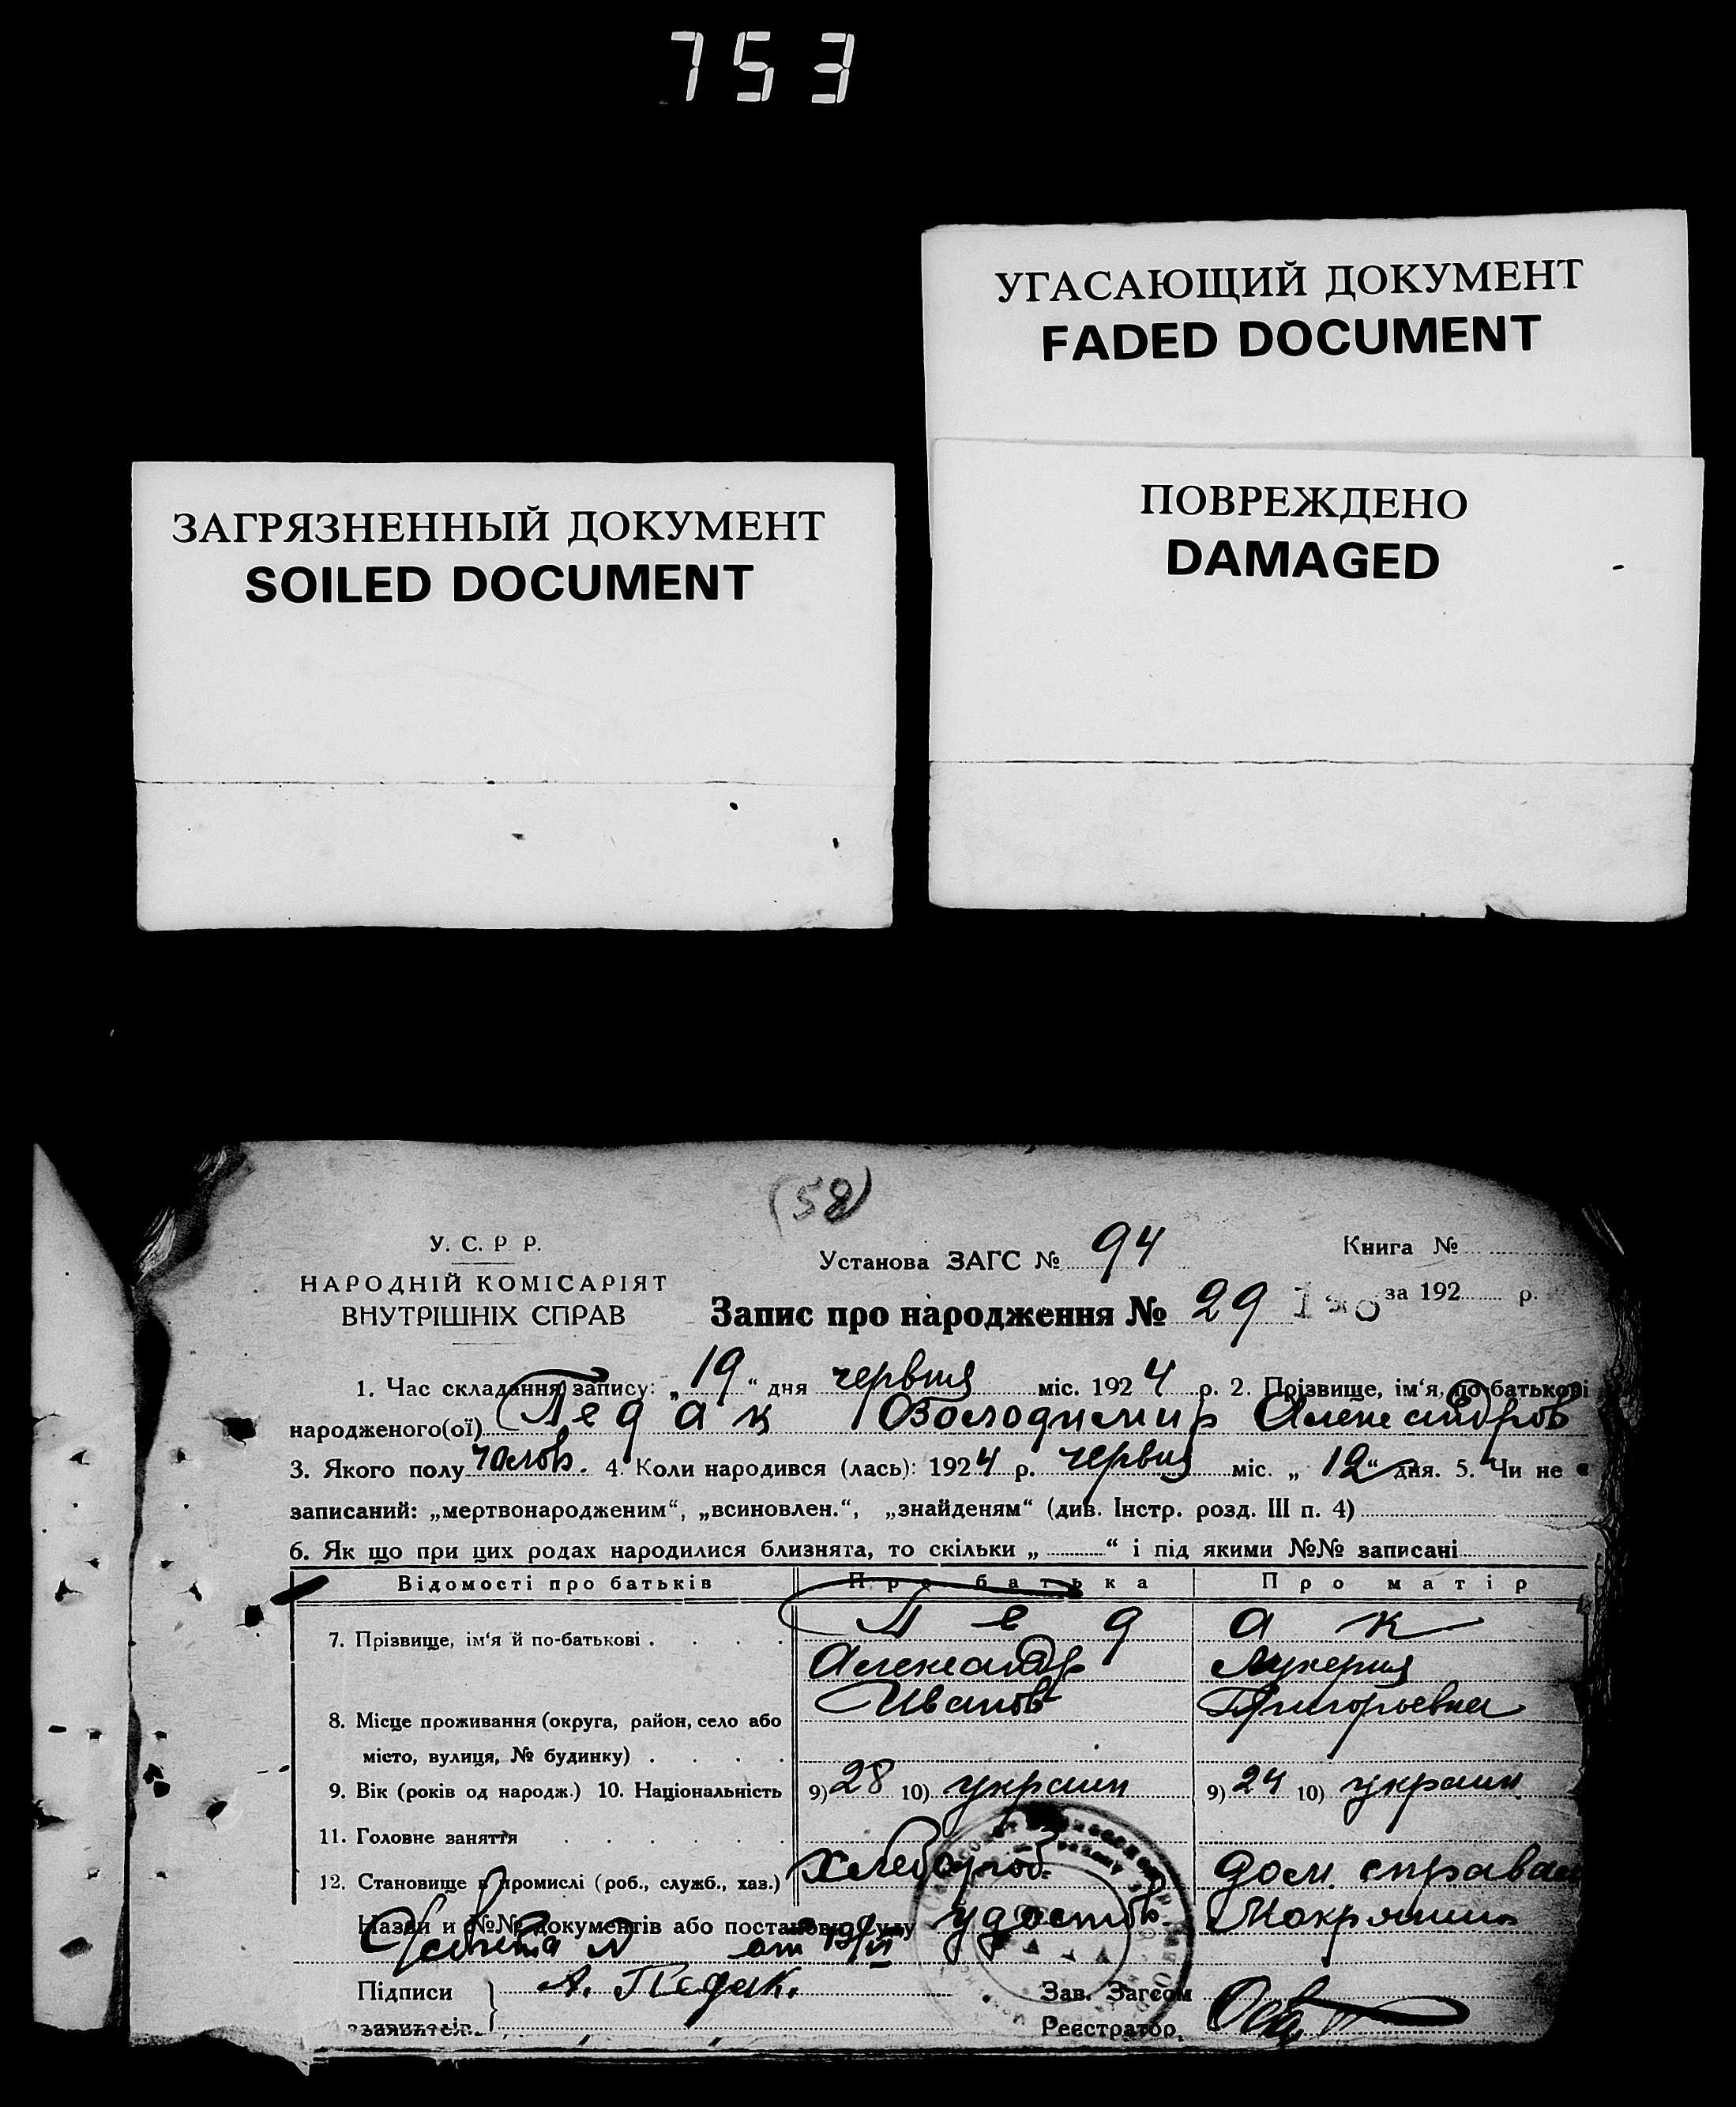 753
УГАСАЮЩИЙ ДОКУМЕНТ
FADED DOCUMENT
ЗАГРЯЗНЕННЫЙ ДОКУМЕНТ
SOILED DOCUMENT
ПОВРЕЖДЕНО
DAMAGED
(58)
У. С. Р Р.
НАРОДНІЙ КОМІСАРІЯТ
ВНУТРІШНІХ СПРАВ
Установа ЗАГС № 94
Книга №
за 192 р.
Запис про народження № 29
1. Час складання запису: „19“ дня червня міс. 1924 р. 2. Прізвище, ім'я, по-батькові
народженого(ої) Педак Володимир Александров
3. Якого полу чолов. 4. Коли народився (лась): 1924 р. червня міс. „12“ дня. 5. Чи не
записаний: „мертвонародженим“, „всиновлен.“, „знайденям“ (див. Інстр. розд. III п. 4)
6. Як що при цих родах народилися близнята, то скільки „ “ і під якими №№ записані
Відомості про батьків Про батька Про матір
7. Прізвище, ім'я й по-батькові . . . . Педак
Александр Лукерия
Иванов Григорьевна
8. Місце проживання (округа, район, село або
місто, вулиця, № будинку) . . . .
9. Вік (років од народж.) 10. Національність 9) 28 10) украин 9) 24 10) украин
11. Головне заняття . . . . . .
12. Становище в промислі (роб., служб., хаз.) хлебороб. дом. справам
Назви и №№ документів або постанови Суду удостов.
от 19/VI
Підписи А. Педак.
заявителів.
Зав. Загсом
Реєстратор.